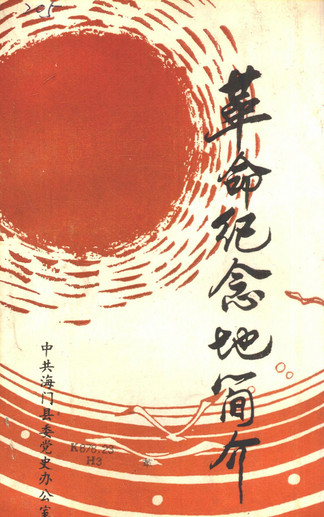 205
革命纪念地简介
中共海门县委党史办公室
K878.23
H3